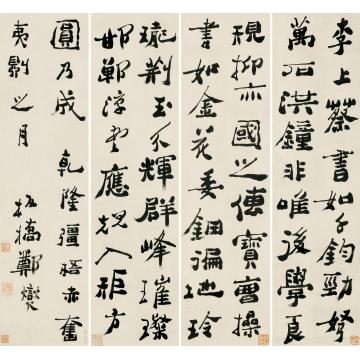 李上蔡書如千鈞勁弩
萬石洪鐘非唯後學良
規抑亦國之傳寶曹操
書如金花委鈿遍地玲
瓏荊玉不輝群峰璀璨
邯鄲淳書應規入矩方
圓乃成 乾隆彊梧赤奮
夷則之月
板橋鄭燮